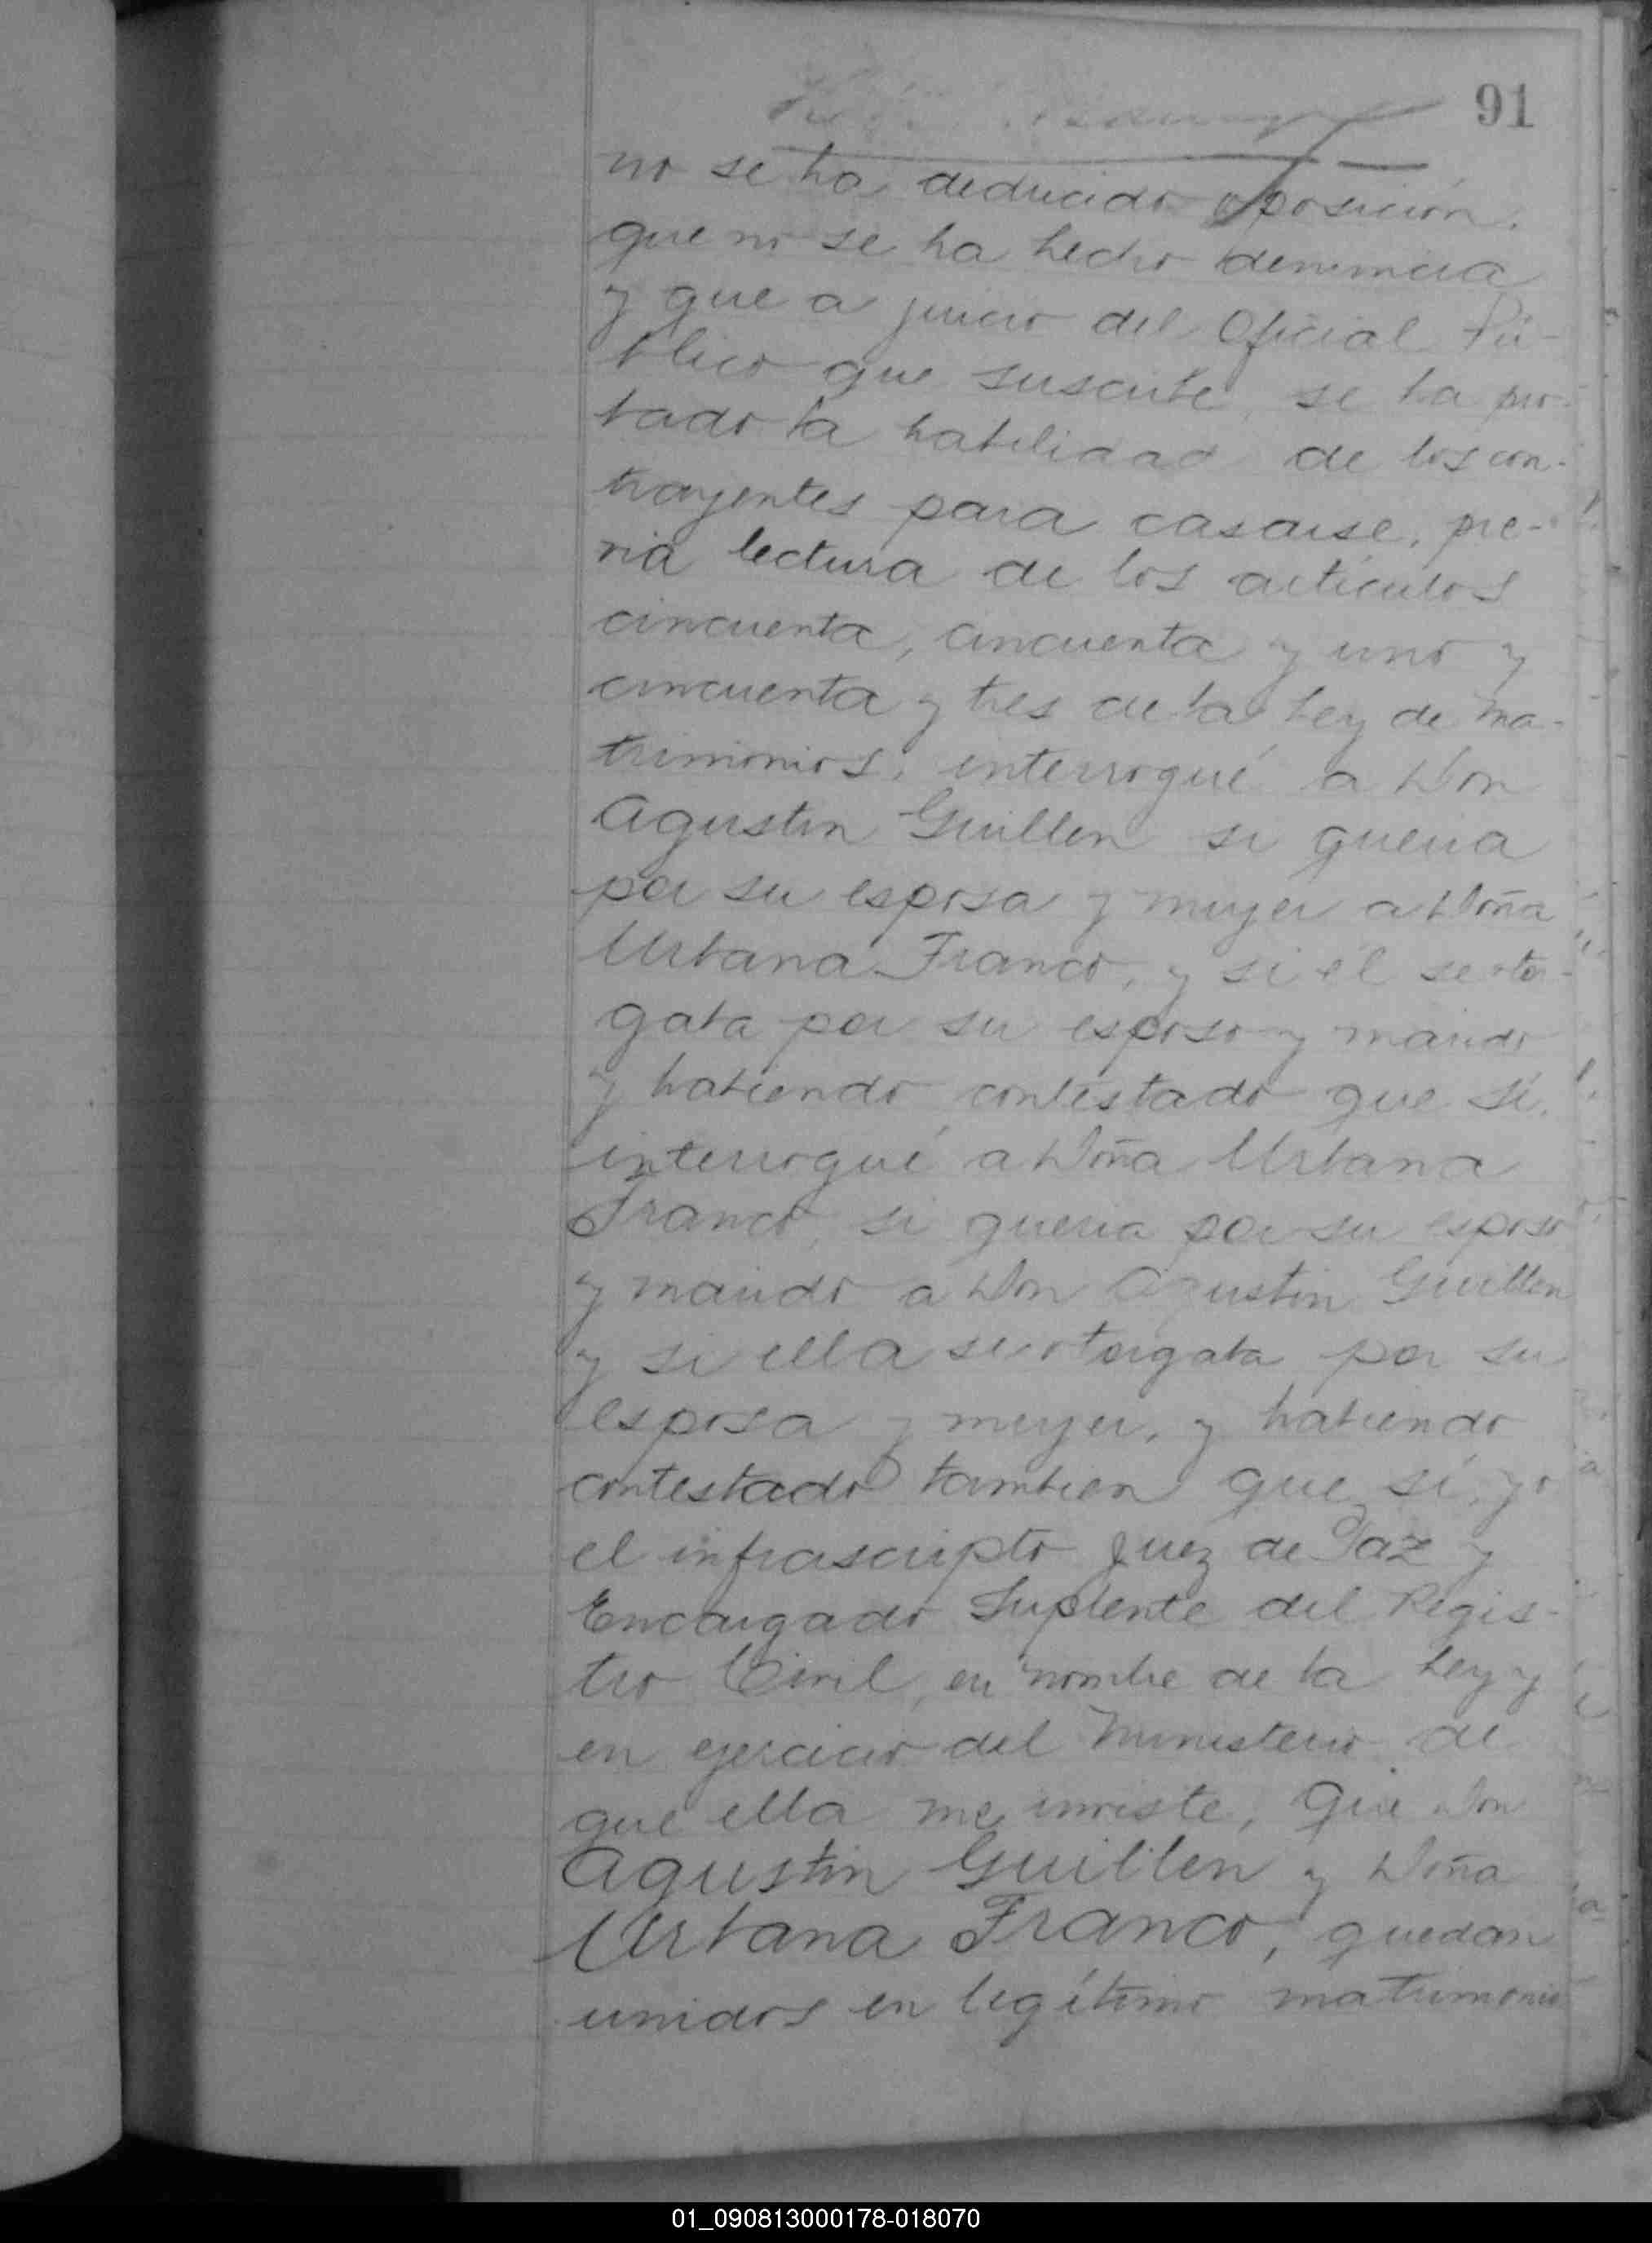 91
no se ha deducido oposición,
que no se ha hecho denuncia
y que a juicio del Oficial Pú-
blico que suscribe, se ha pro-
bado la habilidad de los con-
trayentes para casarse, pre-
via lectura de los artículos
cincuenta, cincuenta y uno y
cincuenta y tres de la Ley de Ma-
trimonios, interrogué a Don
Agustin Guillen si queria
por su esposa y mujer a Doña
Urbana Franco, y si él se otor-
gaba por su esposo y marido
y habiendo contestado que sí,
interrogué a Doña Urbana
Franco, si queria por su esposo
y marido a Don Agustin Guillen
y si ella se otorgaba por su
esposa y mujer, y habiendo
contestado tambien que sí, yo
el infrascripto Juez de Paz y
Encargado Suplente del Regis-
tro Civil, en nombre de la Ley y
en ejercicio del Ministerio de
que ella me inviste, Que Don
Agustin Guillen y Doña
Urbana Franco, quedan
unidos en legítimo matrimonio
01_090813000178-018070